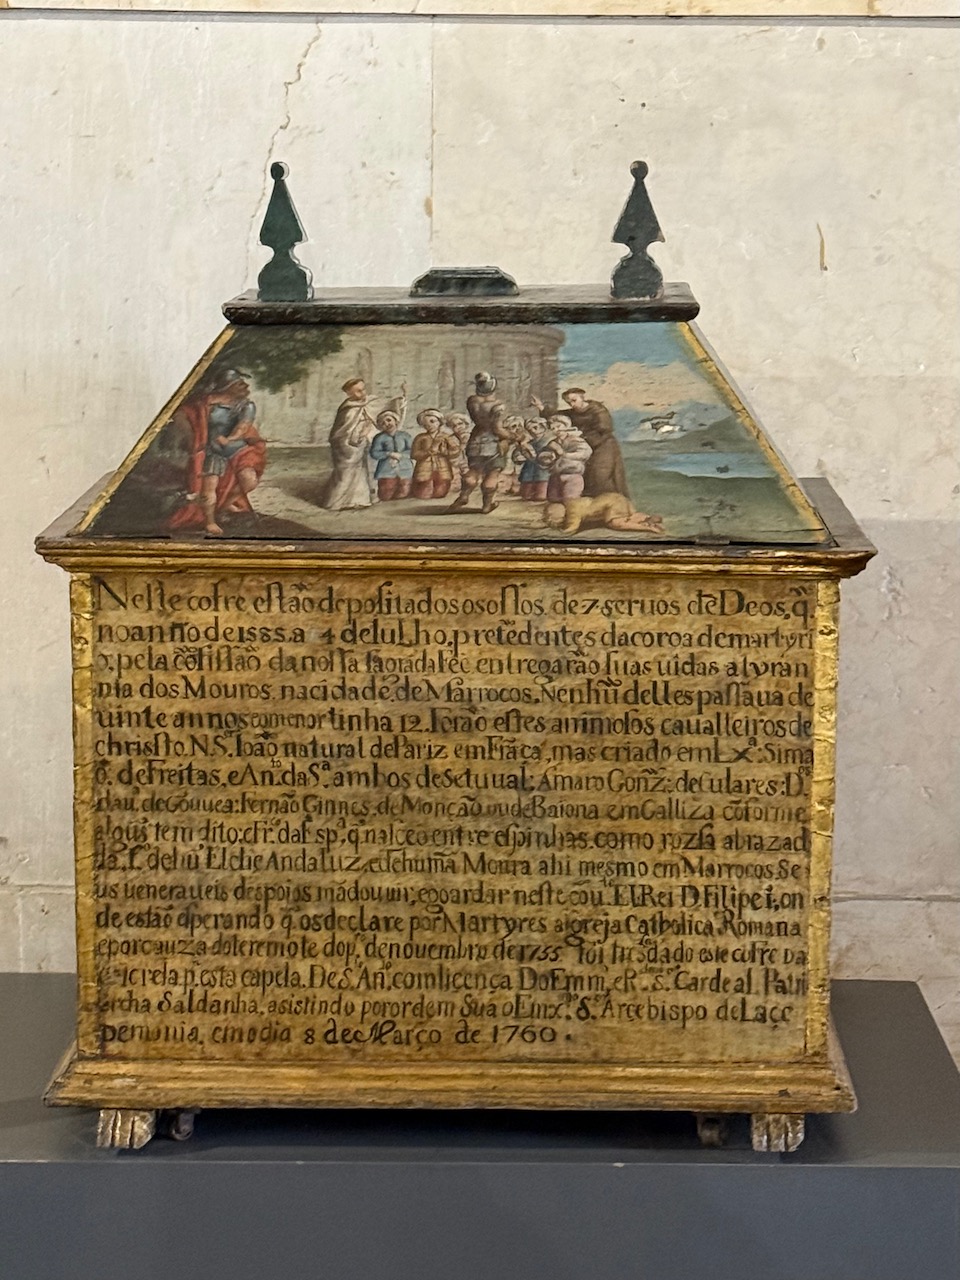 Neste cofre estão depositados os ossos, de 7 seruos de Deos, q̃
no anno de 1585. a 4 de julho, pretẽdentes da coroa de martyri
o, pela cõfissão da nossa sagrada Feê entregarão suas uidas a tyran
nia dos Mouros, na cidade, de Marrocos, Nenhũ delles passaua de
uinte annos eo menor tinha 12. Forão estes animosos caualleiros de
christo, N.Sᵃ. João natural de Pariz em Frãça, mas criado em Lxᵃ: Sima
õ, de Freitas, e Anᵗᵒ. da Sᵃ. ambos de Setuual; Amaro Gonz̃: de Culares: Dˢ.
dau, de Gouuea: Fernão Ginnes, de Monção ou de Baiona em Galliza cõforme
algũs tem dito: e Frᵒ. da Espᵃ. q̃ nasceo entre espinhas, como roza abrazad
de hũ, Elche Andaluz, e de humã Moura ahi mesmo em Marrocos. Se
us ueneraueis despojos mãdou uir, e goardar neste cõuᵗᵒ. El Rei D. Filipe 1, on
de estão esperando q̃ os declare por Martyres a igreja Catholica Romana
e por cauza do teremote do pʳᵒ. de nouembro de 1755 foi tresdado este cofre da
igreja pᵃ. esta capela. De Sᵗᵒ. Anᵗᵒ. com licença Do Emmᵒ. e Rᵐᵒ. Sʳ. Cardeal Patri
archa Saldanha, asistindo por ordem Sua o Emxᵐᵒ. Sʳ. Arcebispo de Lace
demonia, em o dia 8 de Março de 1760.